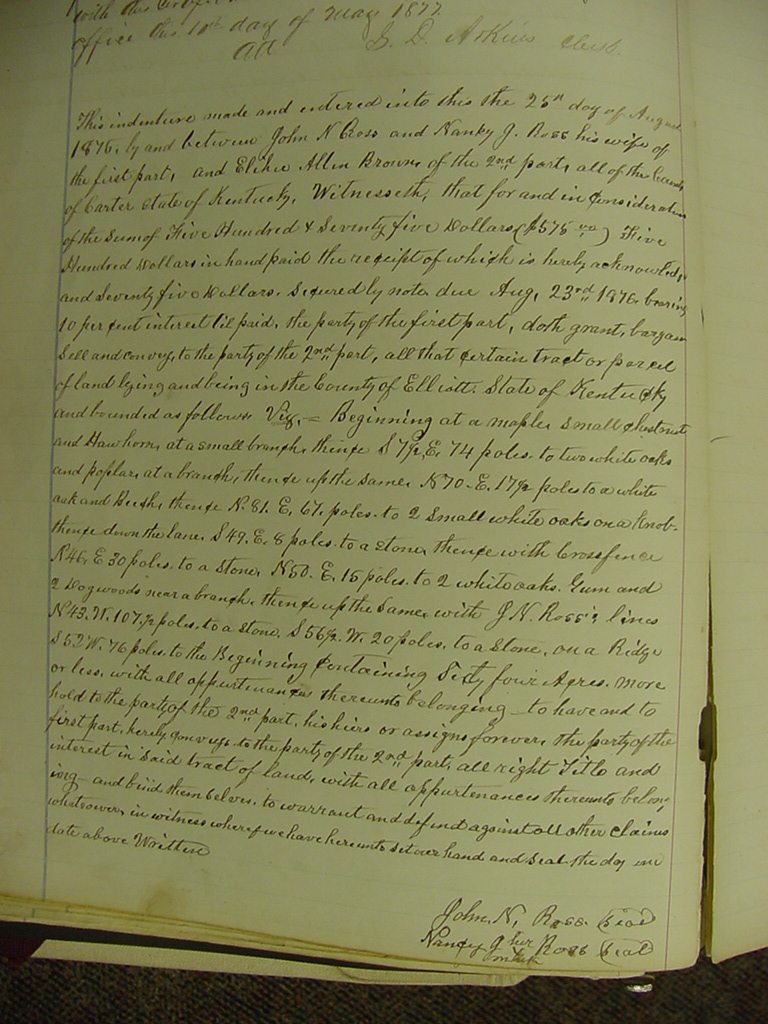 with this certif
office this 10th day of May 1877
Att G. D. Adkins Clerk
This indenture made and entered into this the 25th day of August
1876, by and between John N Ross and Nancy J. Ross his wife of
the first part, and Elihu Allen Brown, of the 2nd part, all of the County
of Carter State of Kentucky, Witnesseth, that for and in Consideration
of the Sum of Five Hundred & Seventy five Dollars ($575 00) Five
Hundred Dollars in hand paid the receipt of which is hereby acknowledg
and Seventy five Dollars. Secured by note due Aug, 23rd 1876. bearing
10 per cent interest til paid, the party of the first part, doth grant, bargain
Sell and convey, to the party of the 2nd part, all that certain tract or parcel
of land lying and being in the County of Elliott. State of Kentucky
and bounded as follows Viz, = Beginning at a maple, Small chestnut
and Hawhorn, at a small branch, thence S 7½ E, 74 poles. to two white oaks
and poplar, at a branch, thence up the same, N 70. E. 17½ poles to a white
oak and Beech, thence N. 81. E, 67. poles. to 2 Small white oaks on a Knob.
thence down the lane, S 49. E. 8 poles. to a stone, thence with Crossfence
N 46, E 30 poles. to a Stone, N 50. E. 15 poles. to 2 white oaks. Gum and
2 Dogwoods near a branch, thence up the Same, with J. N. Ross's lines
N 43. W. 107½ poles. to a Stone. S 56½. W. 20 poles. to a Stone, on a Ridge
S 52 W. 76 poles. to the Beginning Containing Sixty four Acres. more
or less, with all appurtenances thereunto belonging to have and to
hold to the party of the 2nd part, his hiers or assigns forever, the party of the
first part, hereby conveys to the party of the 2nd part, all right Title and
interest in Said tract of land, with all appurtenances thereunto belong
ing and bind themselves, to warrant and defend against all other Claims
whatsoever, in witness whereof we have hereunto set our hand and Seal the day and
date above Written
John. N, Ross. Seal
Nancy J her Ross Seal
mark